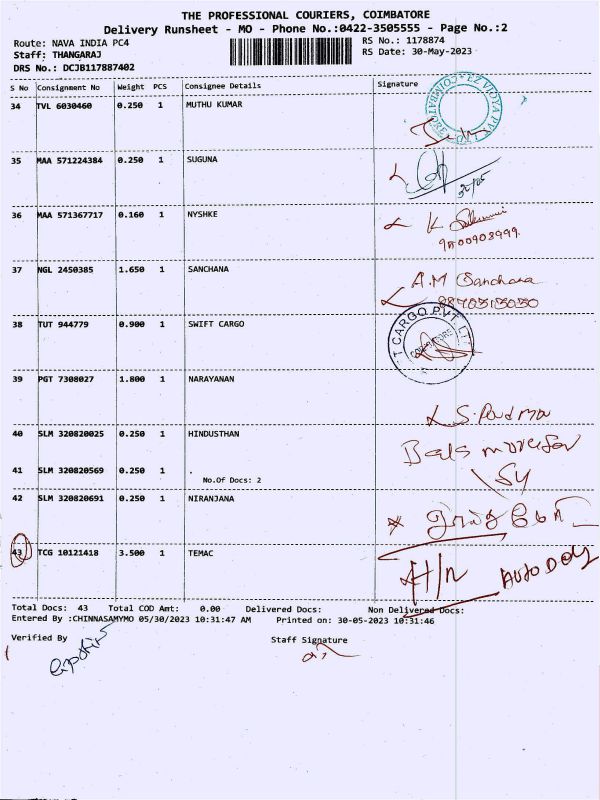 THE PROFESSIONAL COURIERS, COIMBATORE
Delivery Runsheet - MO - Phone No.:0422-3505555 - Page No.:2
Route: NAVA INDIA PC4 RS No.: 1178874
Staff: THANGARAJ RS Date: 30-May-2023
DRS No.: DCJB117887402
S No Consignment No Weight PCS Consignee Details Signature
34 TVL 6030460 0.250 1 MUTHU KUMAR
35 MAA 571224384 0.250 1 SUGUNA
36 MAA 571367717 0.160 1 NYSHKE K
9800903999
37 NGL 2450385 1.650 1 SANCHANA A.M Sanchana
38 TUT 944779 0.900 1 SWIFT CARGO T CARGO PVT LT
39 PGT 7308027 1.800 1 NARAYANAN
40 SLM 320820025 0.250 1 HINDUSTHAN
41 SLM 320820569 0.250 1 .
No.Of Docs: 2
42 SLM 320820691 0.250 1 NIRANJANA
43 TCG 10121418 3.500 1 TEMAC
Total Docs: 43 Total COD Amt: 0.00 Delivered Docs: Non Delivered Docs:
Entered By :CHINNASAMYMO 05/30/2023 10:31:47 AM Printed on: 30-05-2023 10:31:46
Verified By Staff Signature